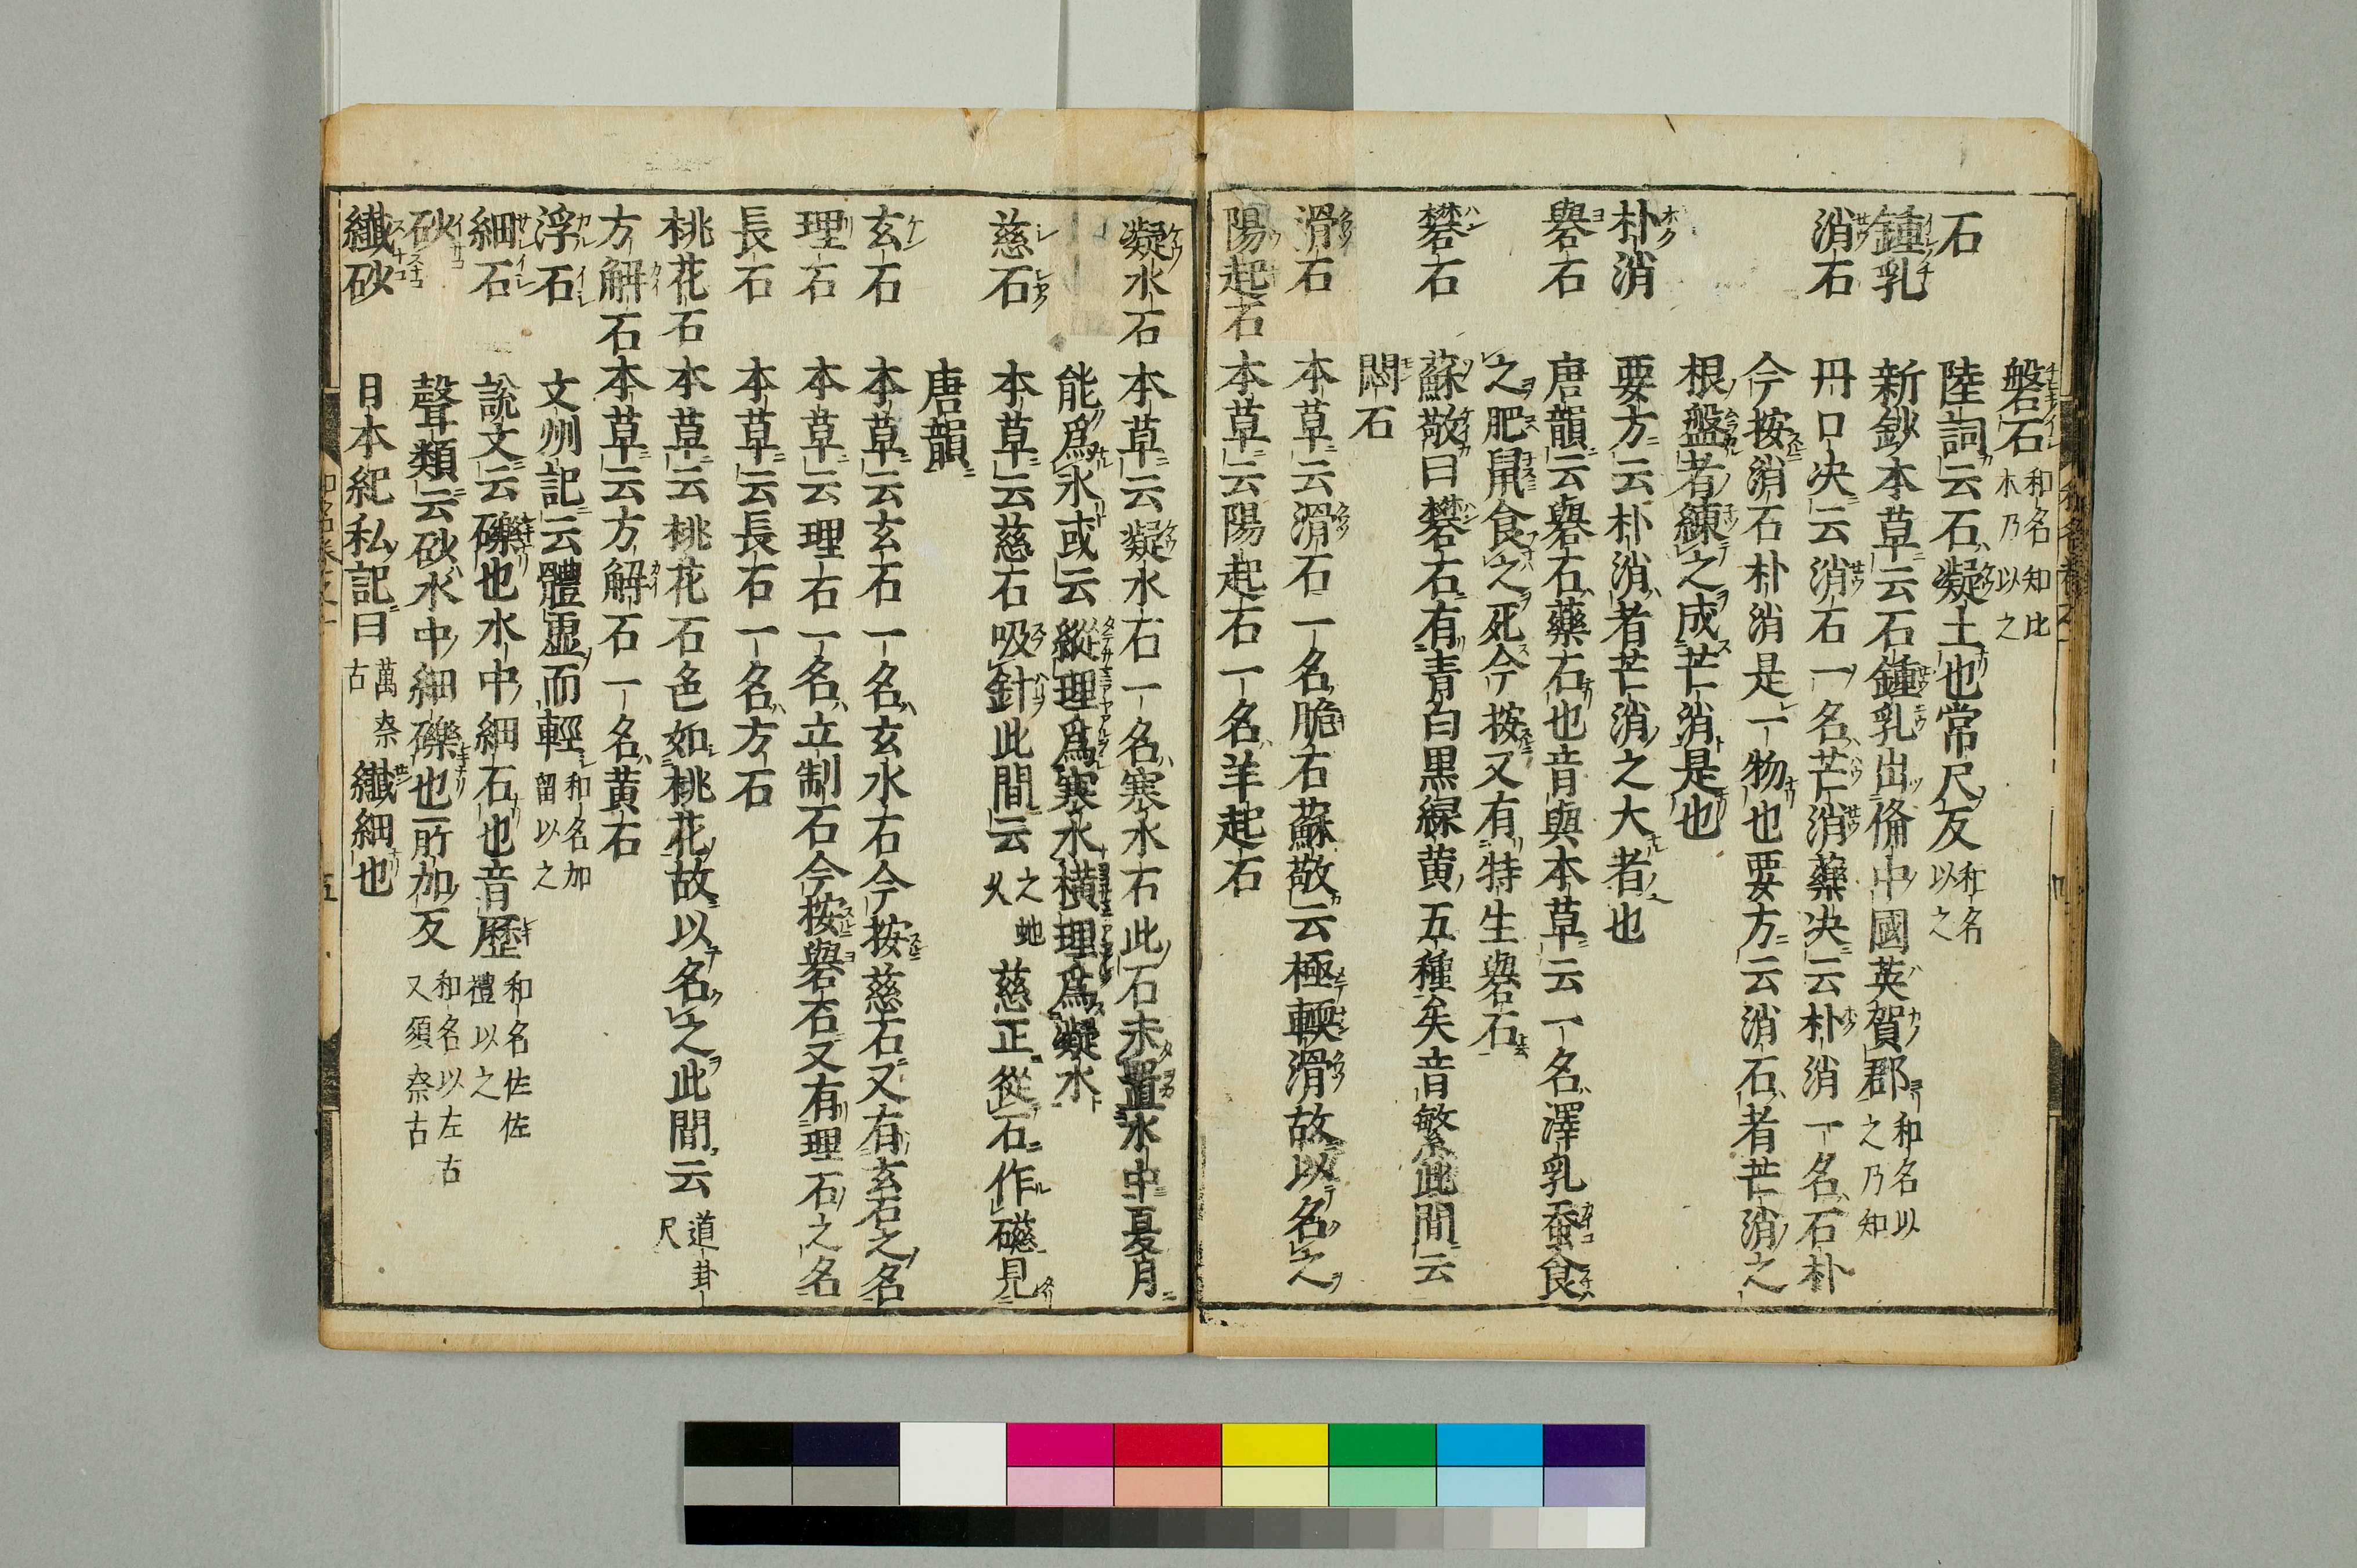 磐石 和名知比木乃以之
石 陸詞云石凝土也常尺反 和名以之
鍾乳 新鈔本草云石鍾乳出備中國英賀郡 和名以之乃知
消石 丹口决云消石一名芒消藥决云朴消一名石朴
今按消石朴消是一物也要方云消石者芒消之
根盤者練之成芒消是也
朴消 要方云朴消者芒消之大者也
礜石 唐韻云礜石藥石也音與本草云一名澤乳蚕食
之肥鼠食之死今按又有特生礜石
礬石 蘇敬曰礬石有青白黒緑黄五種矣音繁此間云
悶石
滑石 本草云滑石一名脆石蘇敬云極軟滑故以名之
陽起石 本草云陽起石一名羊起石
凝水石 本草云凝水石一名寒水石此石未置水中夏月
能爲氷或云縱理爲寒水横理爲凝水
慈石 本草云慈石吸針此間云 之虵久 慈正從石作礠見
唐韻
玄石 本草云玄石一名玄水石今按慈石又有玄石之名
理石 本草云理石一名立制石今按礜石又有理石之名
長石 本草云長石一名方石
桃花石 本草云桃花石色如桃花故以名之此間云 道卦尺
方解石 本草云方解石一名黄石
浮石 文州記云體虚而輕 和名加留以之
細石 説文云礫也水中細石也音歴 和名佐佐禮以之
砂 聲類云砂水中細礫也所加反 和名以左古又須奈古
纎砂 日本紀私記曰 萬奈古 纎細也